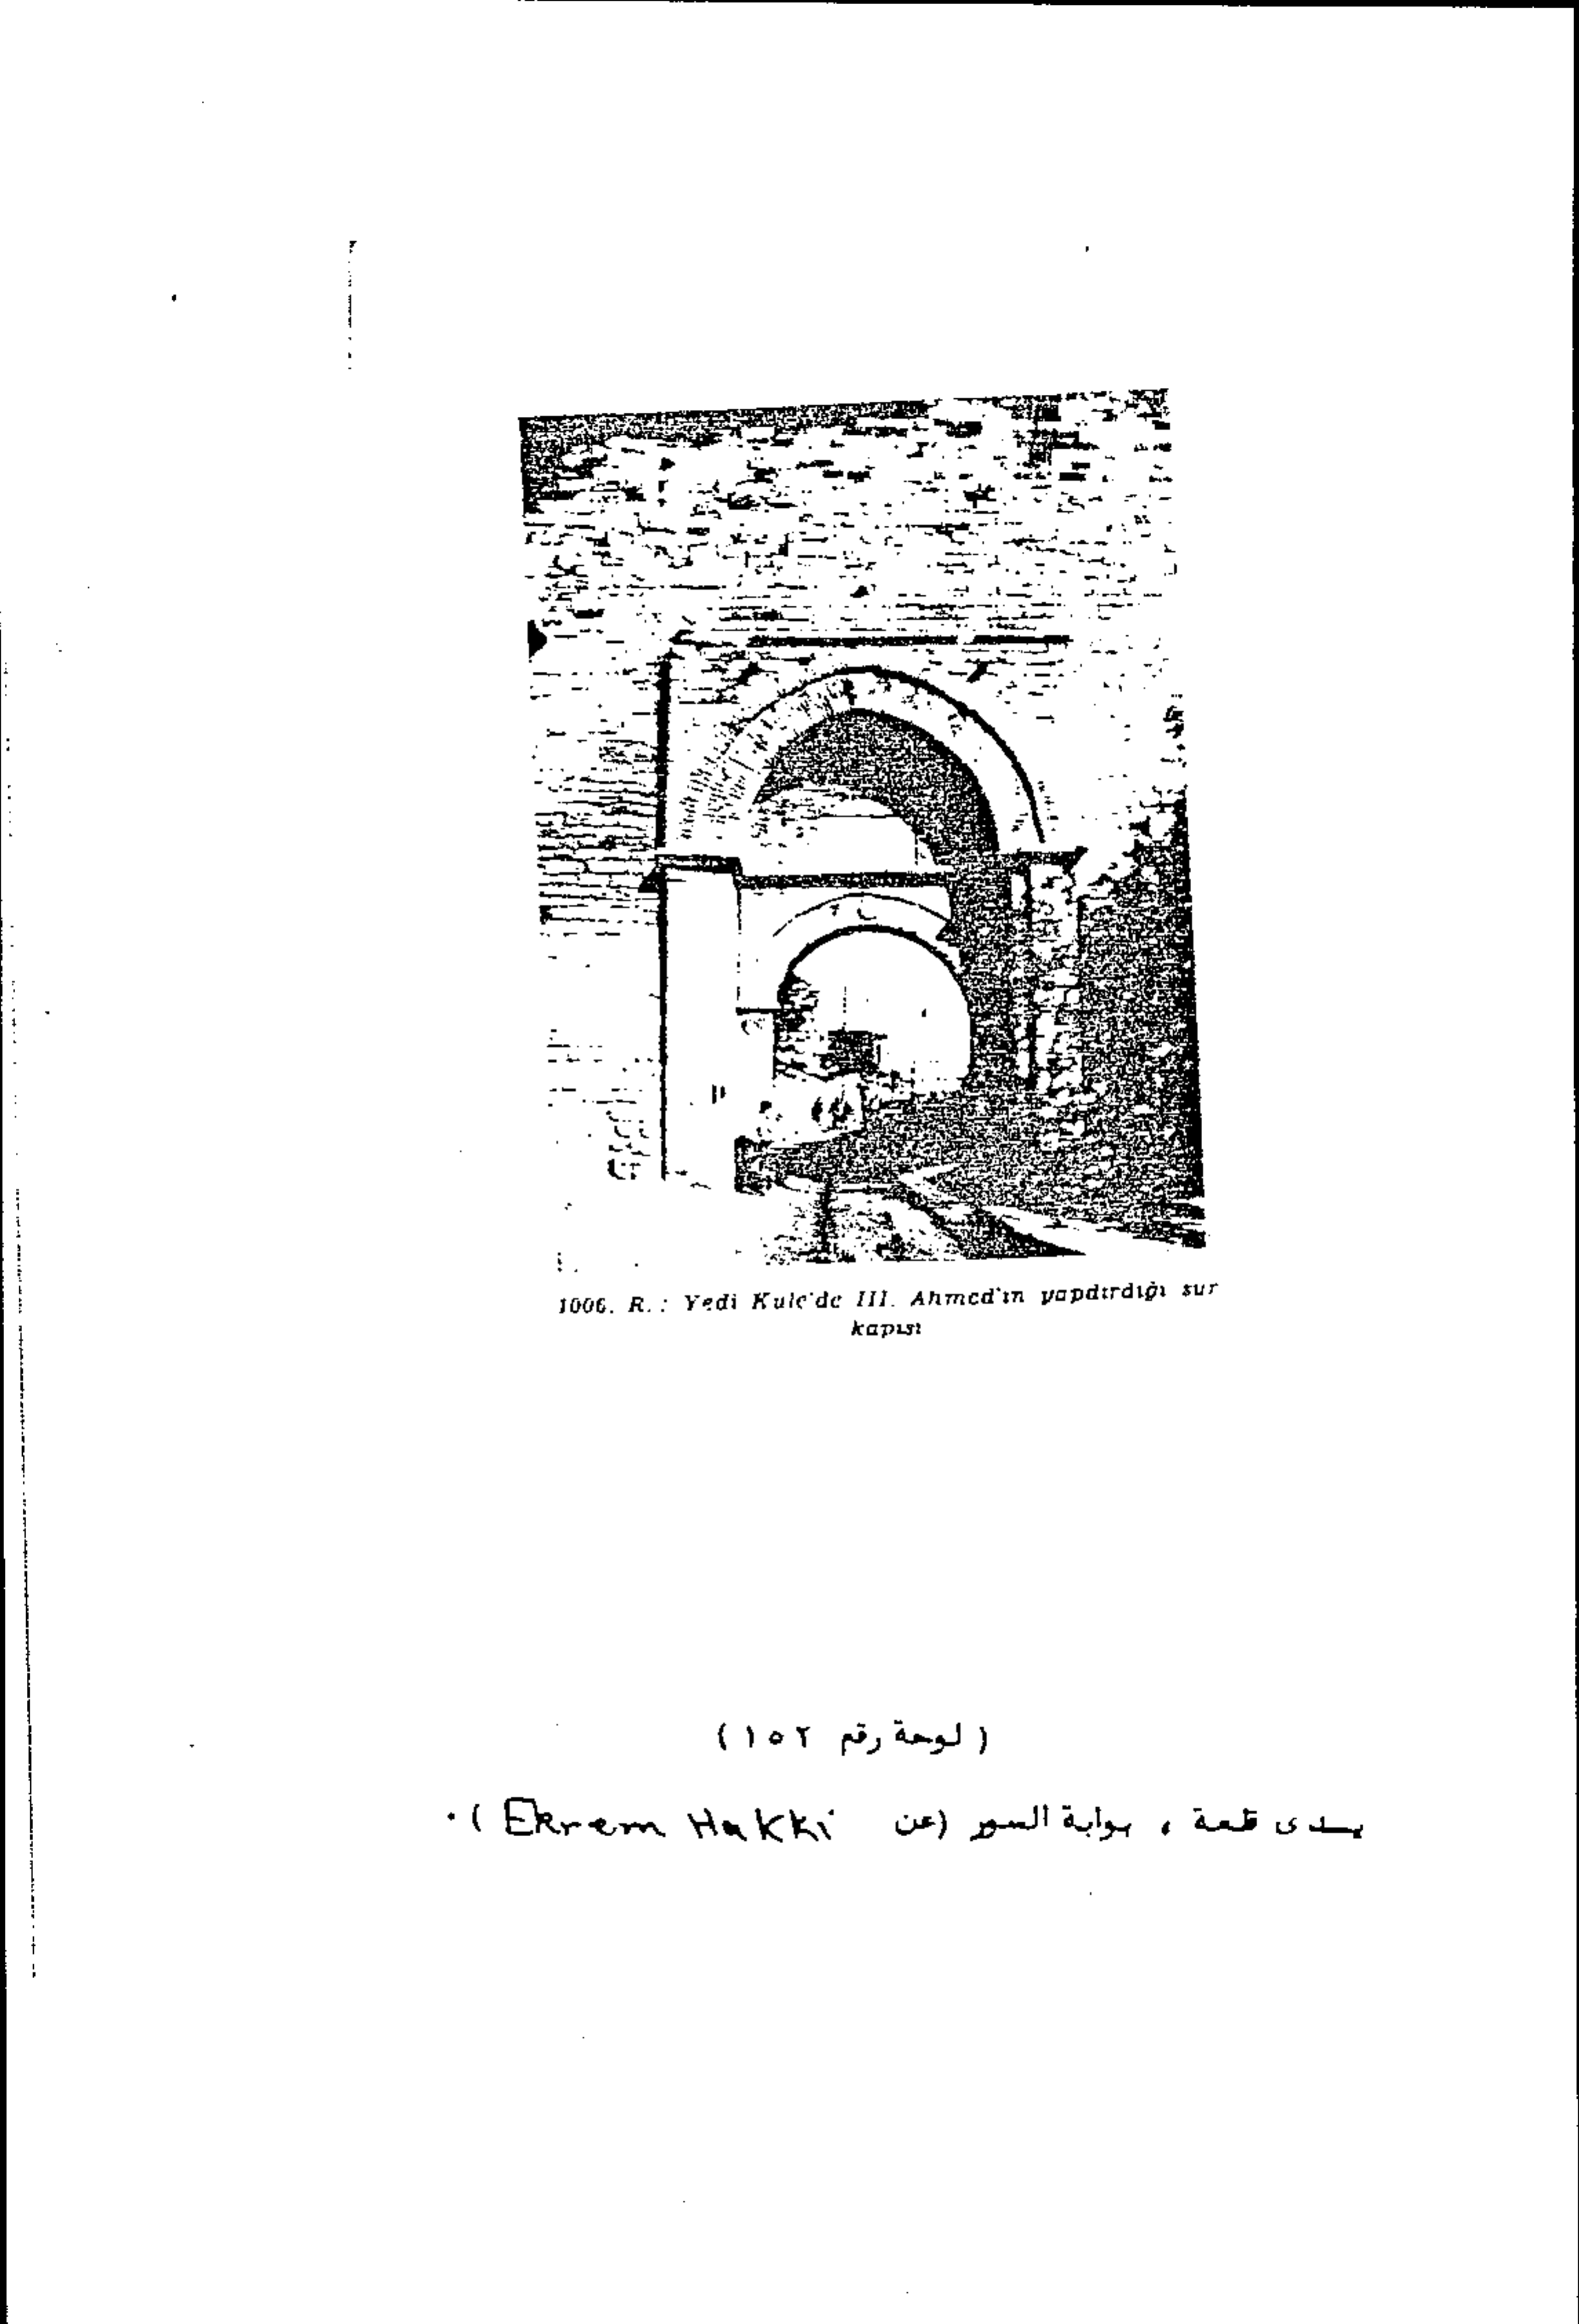 1006. R.: Yedi Kule'de III. Ahmed'in yapdırdığı sur
kapısı
( لوحة رقم ١٥٢ )
يـدى قلعة ، بوابة السور (عن Ekrem Hakki ) .